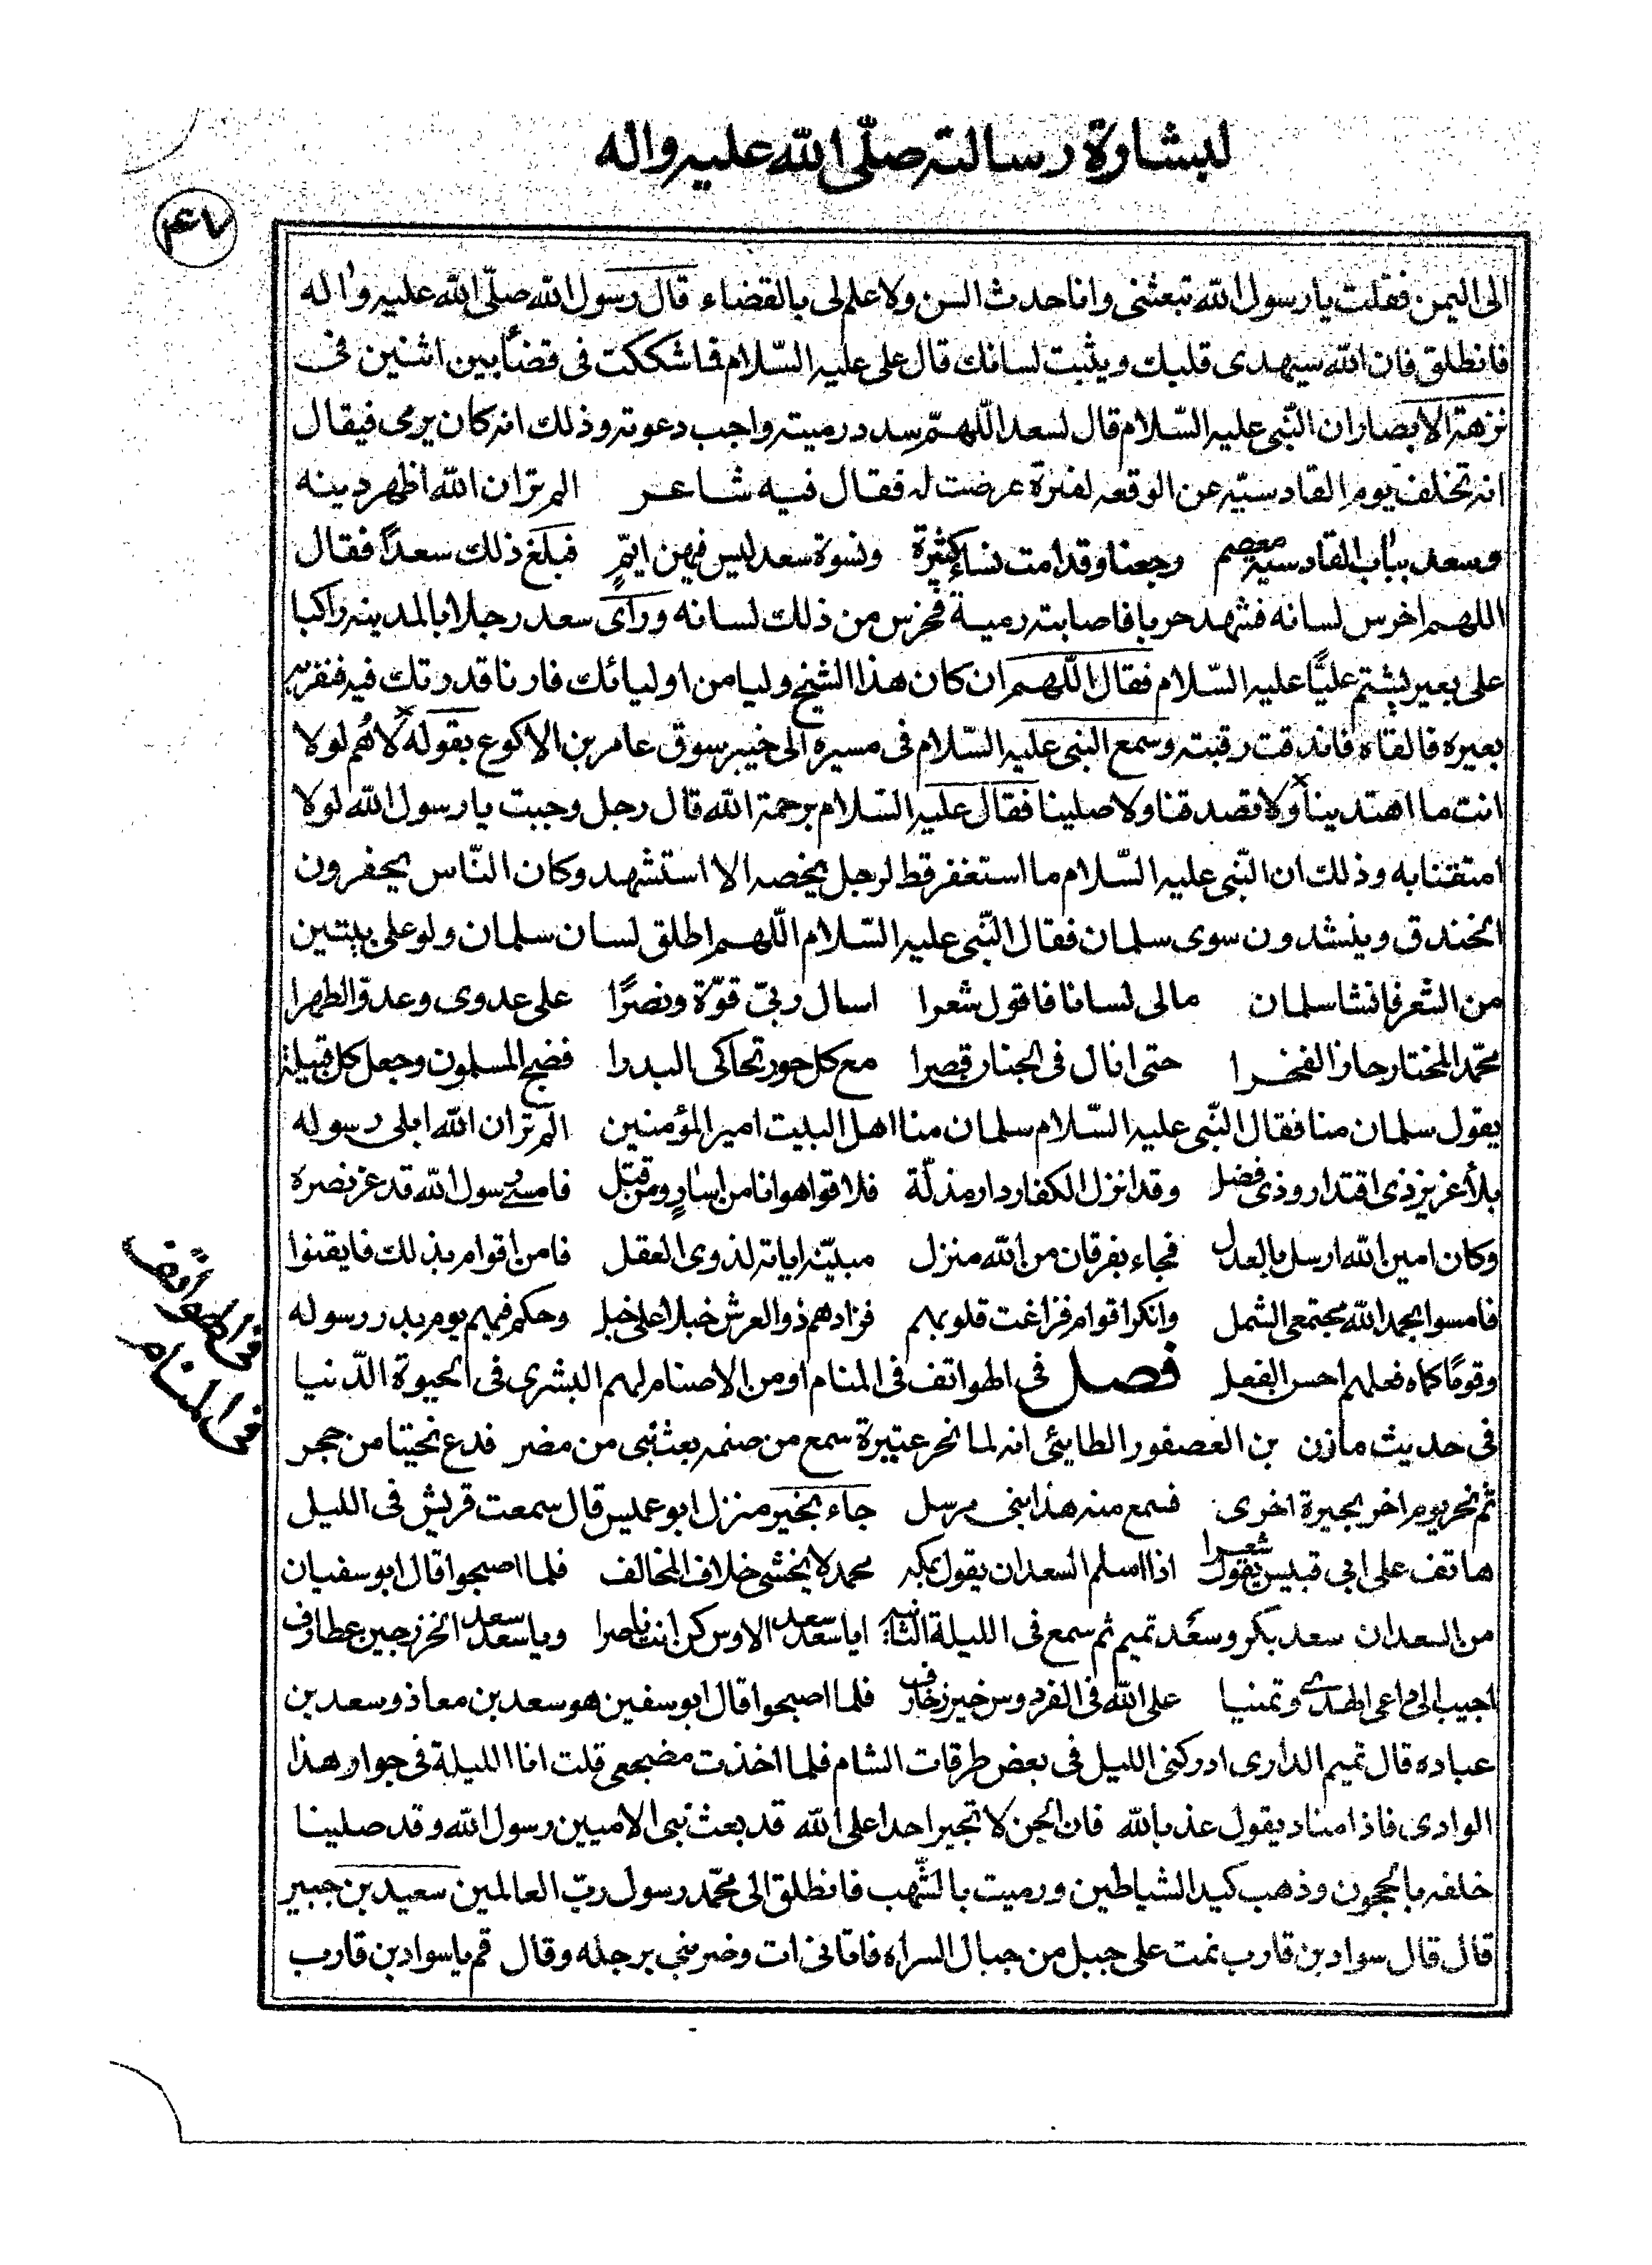 لبشارة رسالته صلّى الله عليه واله
٤٧
الى اليمن فقلت يا رسول الله تبعثنى وانا حدث السن ولا علم لى بالقضاء قال رسول الله صلّى الله عليه واله
فانطلق فان الله سيهدى قلبك ويثبت لسانك قال على عليه السّلام فما شككت فى قضاً بين اثنين فى
نزهة الابصار ان النّبى عليه السّلام قال لسعد اللّهمّ سدد رميته واجب دعوته وذلك انه كان يرمى فيقال
انه تخلف يوم القادسيّه عن الوقعه لفترة عرضت له فقال فيه شاعر الم تر ان الله اظهر دينه
وسعد بباب القادسيّه معصم رجعنا وقد امت نساء كثيرة ونسوة سعد ليس فيهن ايّمٍ فبلغ ذلك سعداً فقال
اللهم اخرس لسانه فشهد حربا فاصابته رمية فخرس من ذلك لسانه وراى سعد رجلا بالمدينه راكبا
على بعير يشتم عليًّا عليه السّلام فقال اللّهم ان كان هذا الشيخ وليا من اوليائك فارنا قدرتك فيه فنفر به
بعيره فالقاه فاندقت رقبته وسمع النبى عليه السّلام فى مسيره الى خيبر سوق عامر بن الاكوع بقوله لاهُم لولا
انت ما اهتدينا ولا تصدقنا ولا صلينا فقال عليه السّلام برحمة الله قال رجل وجبت يا رسول الله لولا
امتعتنا به وذلك ان النّبى عليه السّلام ما استغفر قط لرجل يخصه الا استشهد وكان النّاس يحفرون
الخندق وينشدون سوى سلمان فقال النّبى عليه السّلام اللّهم اطلق لسان سلمان ولو على بيتين
من الشعر فانشا سلمان مالى لسانا فاقول شعرا اسال ربىّ قوّة ونصرًا على عدوى وعدو الطهرا
محمّد المختار حاز الفخرا حتى انال فى الجنار قصرا مع كل حور تحاكى البدرا فضج المسلمون وجعل كل قبيلة
يقول سلمان منا فقال النّبى عليه السّلام سلمان منا اهل البيت امير المؤمنين الم تر ان الله ابلى رسوله
بلاً عزيز ذى اقتدار وذى فضل وقد انزل الكفار دار مذلّة فلاقوا هوانا من اسارٍ ومن قتل فامسى رسول الله قد عز نصره
وكان امين الله ارسل بالعدل فجاء بفرقان من الله منزل مبيّنه اياته لذوى العقل فامن اقوام بذلك فايقنوا
فامسوا بحمد الله مجتمعى الشمل وانكر اقوام فزاغت قلوبهم فزادهم ذو العرش خبلا على خبل وحكم فيهم يوم بدر رسوله
وقومًا كماه فعلهم احسن الفعل فصل فى الهواتف فى المنام او من الاصنام لهم البشرى فى الحيوة الدّنيا
فى حديث مازن بن العصفور الطايئى انه لما نحر عتيرة سمع من صنمه بعث نبى من مضر فدع نحيتا من حجر
ثم نحر يوم اخر بحيرة اخرى فسمع منه هذا بنى مرسل جاء بخير منزل ابو عميس قال سمعت قريش فى الليل
هاتف على ابى قبيس يقول شعرا اذا اسلم السعدان يقول بمكه محمد لا يخشى خلاف المخالف فلما اصبحوا قال ابو سفيان
من السعدان سعد بكر وسعد تميم ثم سمع فى الليلة الثانيه ايا سعد سعد الاوس كن انت ناصرا ويا سعد سعد الخزرجين عطارف
اجيبا الى داعى الهدى وتمنيا على الله فى الفردوس خير زخارف فلما اصبحوا قال ابو سفين هو سعد بن معاذ وسعد بن
عباده قال تميم الدارى ادركنى الليل فى بعض طرقات الشام فلما اخذت مضجعى قلت انا الليلة فى جوار هذا
الوادى فاذا مناد يقول عذ بالله فان الجن لا تجير احدا على الله قد بعث نبى الاميين رسول الله وقد صلينا
خلفه بالحجون وذهب كيد الشياطين ورميت بالشّهب فانطلق الى محمّد رسول ربّ العالمين سعيد بن جبير
قال قال سواد بن قارب نمت على جبل من جبال السراه فاتانى ات وضربنى برجله وقال قم يا سواد بن قارب
فى المنام